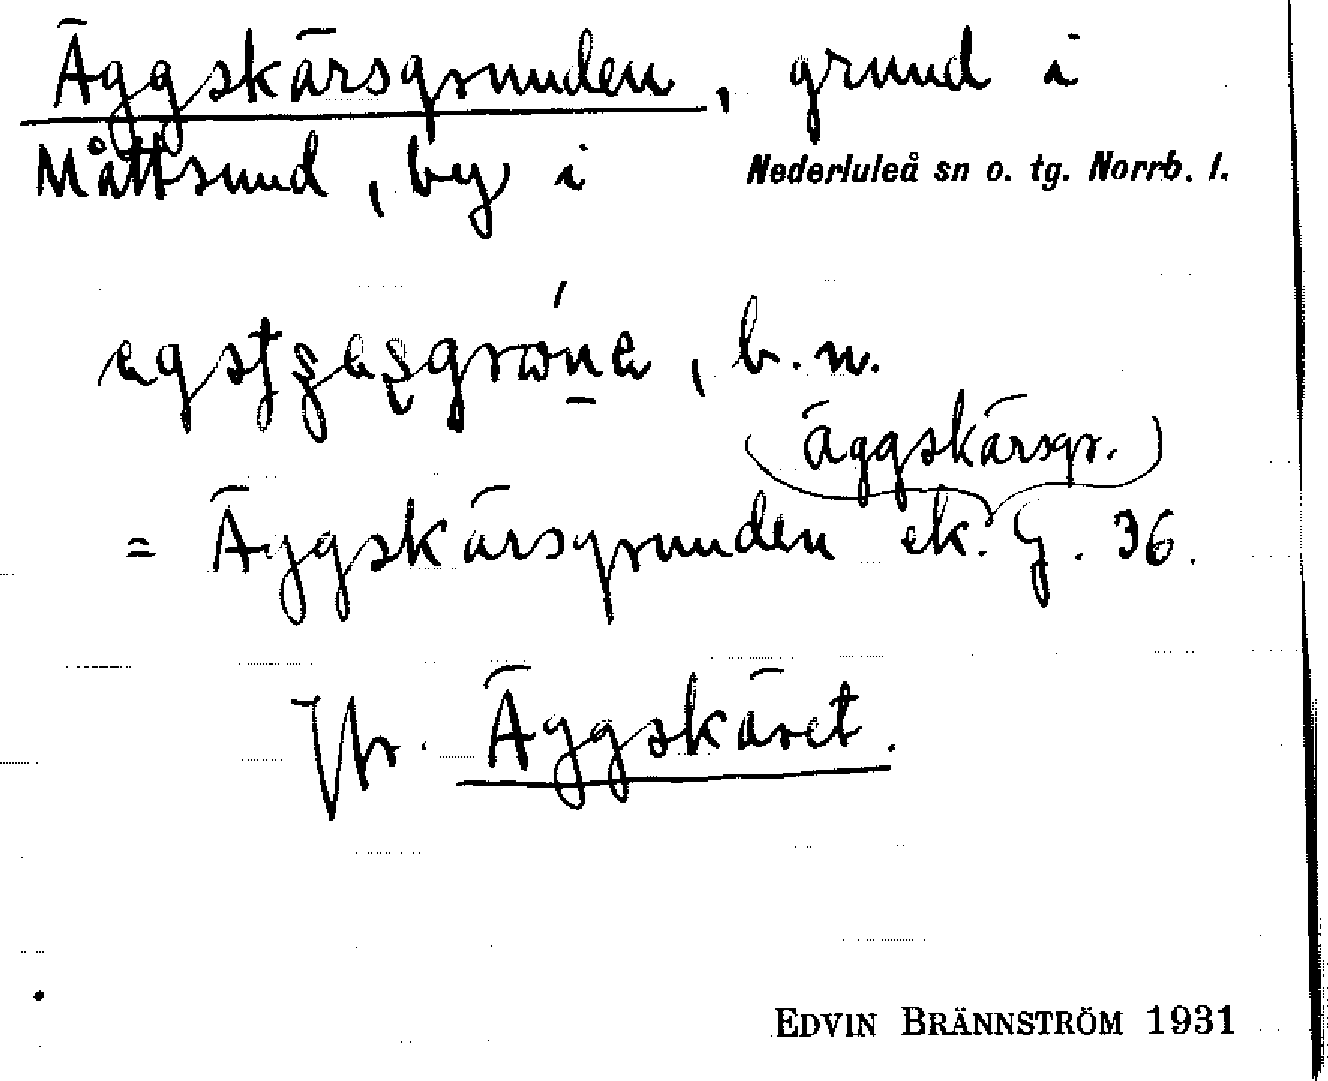 Äggskärsgrunden, grund i
Måttsund, by i Nederluleå sn o. tg. Norrb. l.
, b.n.
(äggskärsgr.)
= Äggskärsgrunden ek. G. 36.
Jfr. Äggskäret.
EDVIN BRÄNNSTRÖM 1931